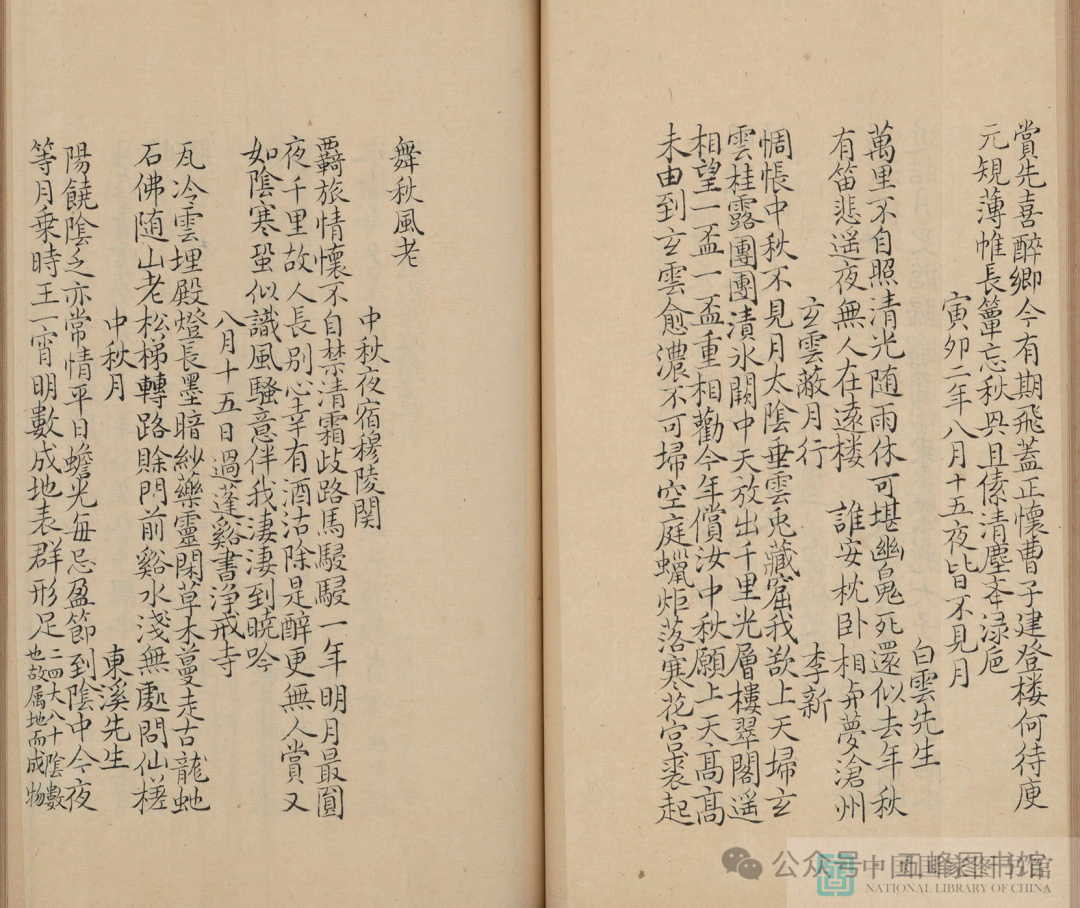 賞先喜醉鄉今有期飛蓋正懷曹子建登楼何待庾
元規薄帷長簟忘秋㒷且傃清塵夲渌巵
寅夘二年八月十五夜皆不見月
白雲先生
萬里不自照清光随雨休可堪幽鬼死還似去年秋
有笛悲遥夜無人在遠楼 誰安枕卧相与夢滄州
玄雲蔽月行 李新
惆悵中秋不見月太陰垂雲兎藏窟我欲上天埽玄
雲桂露團團漬氷闕中天放出千里光層樓翠閣遥
相望一盃一盃重相勸今年償汝中秋願上天髙髙
未由到玄雲愈濃不可埽空庭蠟炬落寒花宫裘起
舞秋風老
中秋夜宿穆陵関
覊旅情懷不自禁清霜歧路馬駸駸一年明月最圓
夜千里故人長别心幸有酒沽除是醉更無人賞又
如陰寒蛩似識風騷意伴我淒淒到曉吟
八月十五日過蓬谿書浄戒寺
瓦冷雲埋殿燈長墨暗紗藥靈閑草木蔓走古龍虵
石佛随山老松梯轉路賒門前谿水淺無處問仙槎
中秋月 東溪先生
陽饒陰乏亦常情平日蟾光每忌盈節到陰中今夜
等月乗時王一宵明數成地表群形足二四大八十陰數也故属地而成物
公众号·五峰图书馆
中国国家图书馆
NATIONAL LIBRARY OF CHINA